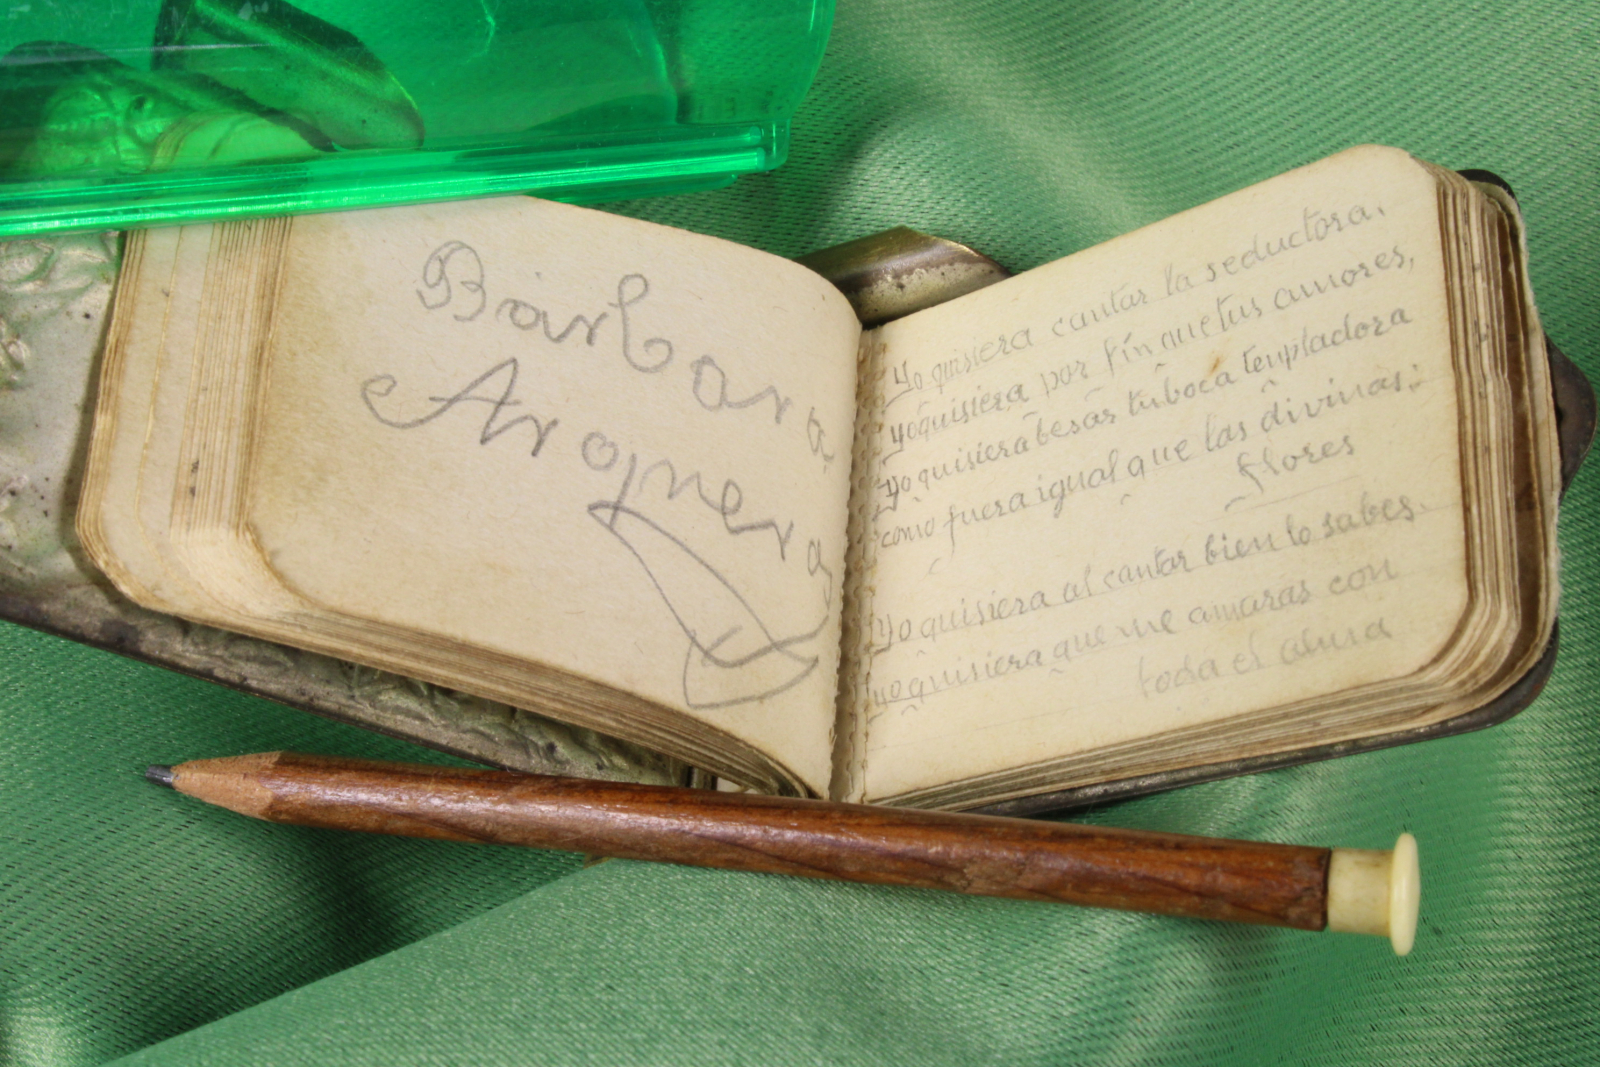 Bárbara
Arquero
Yo quisiera cantar la seductora.
yo quisiera por fin que tus amores,
Yo quisiera besar tu boca templadora
como fuera igual que las divinas:
flores
Yo quisiera al cantar bien lo sabes.
yo quisiera que me amaras con
toda el alma